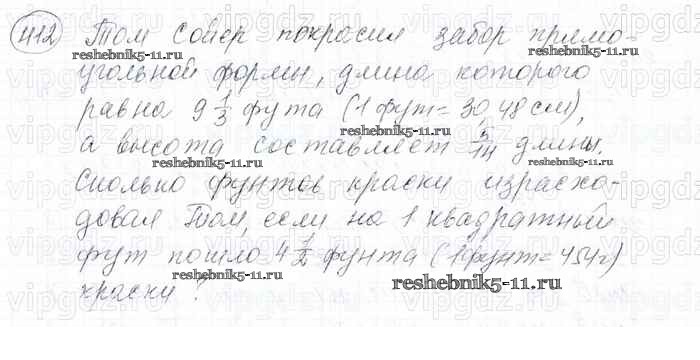 412 Том Сойер покрасил забор прямо-
угольной формы, длина которого
равна 9 1/3 фута (1 фут = 30,48 см),
а высота составляет 5/14 длины.
Сколько фунтов краски израсхо-
довал Том, если на 1 квадратный
фут пошло 4 1/2 фунта (1 фунт = 454 г)
краски?
reshebnik5-11.ru
reshebnik5-11.ru
reshebnik5-11.ru
reshebnik5-11.ru
reshebnik5-11.ru
reshebnik5-11.ru
reshebnik5-11.ru
vipgdz.ru